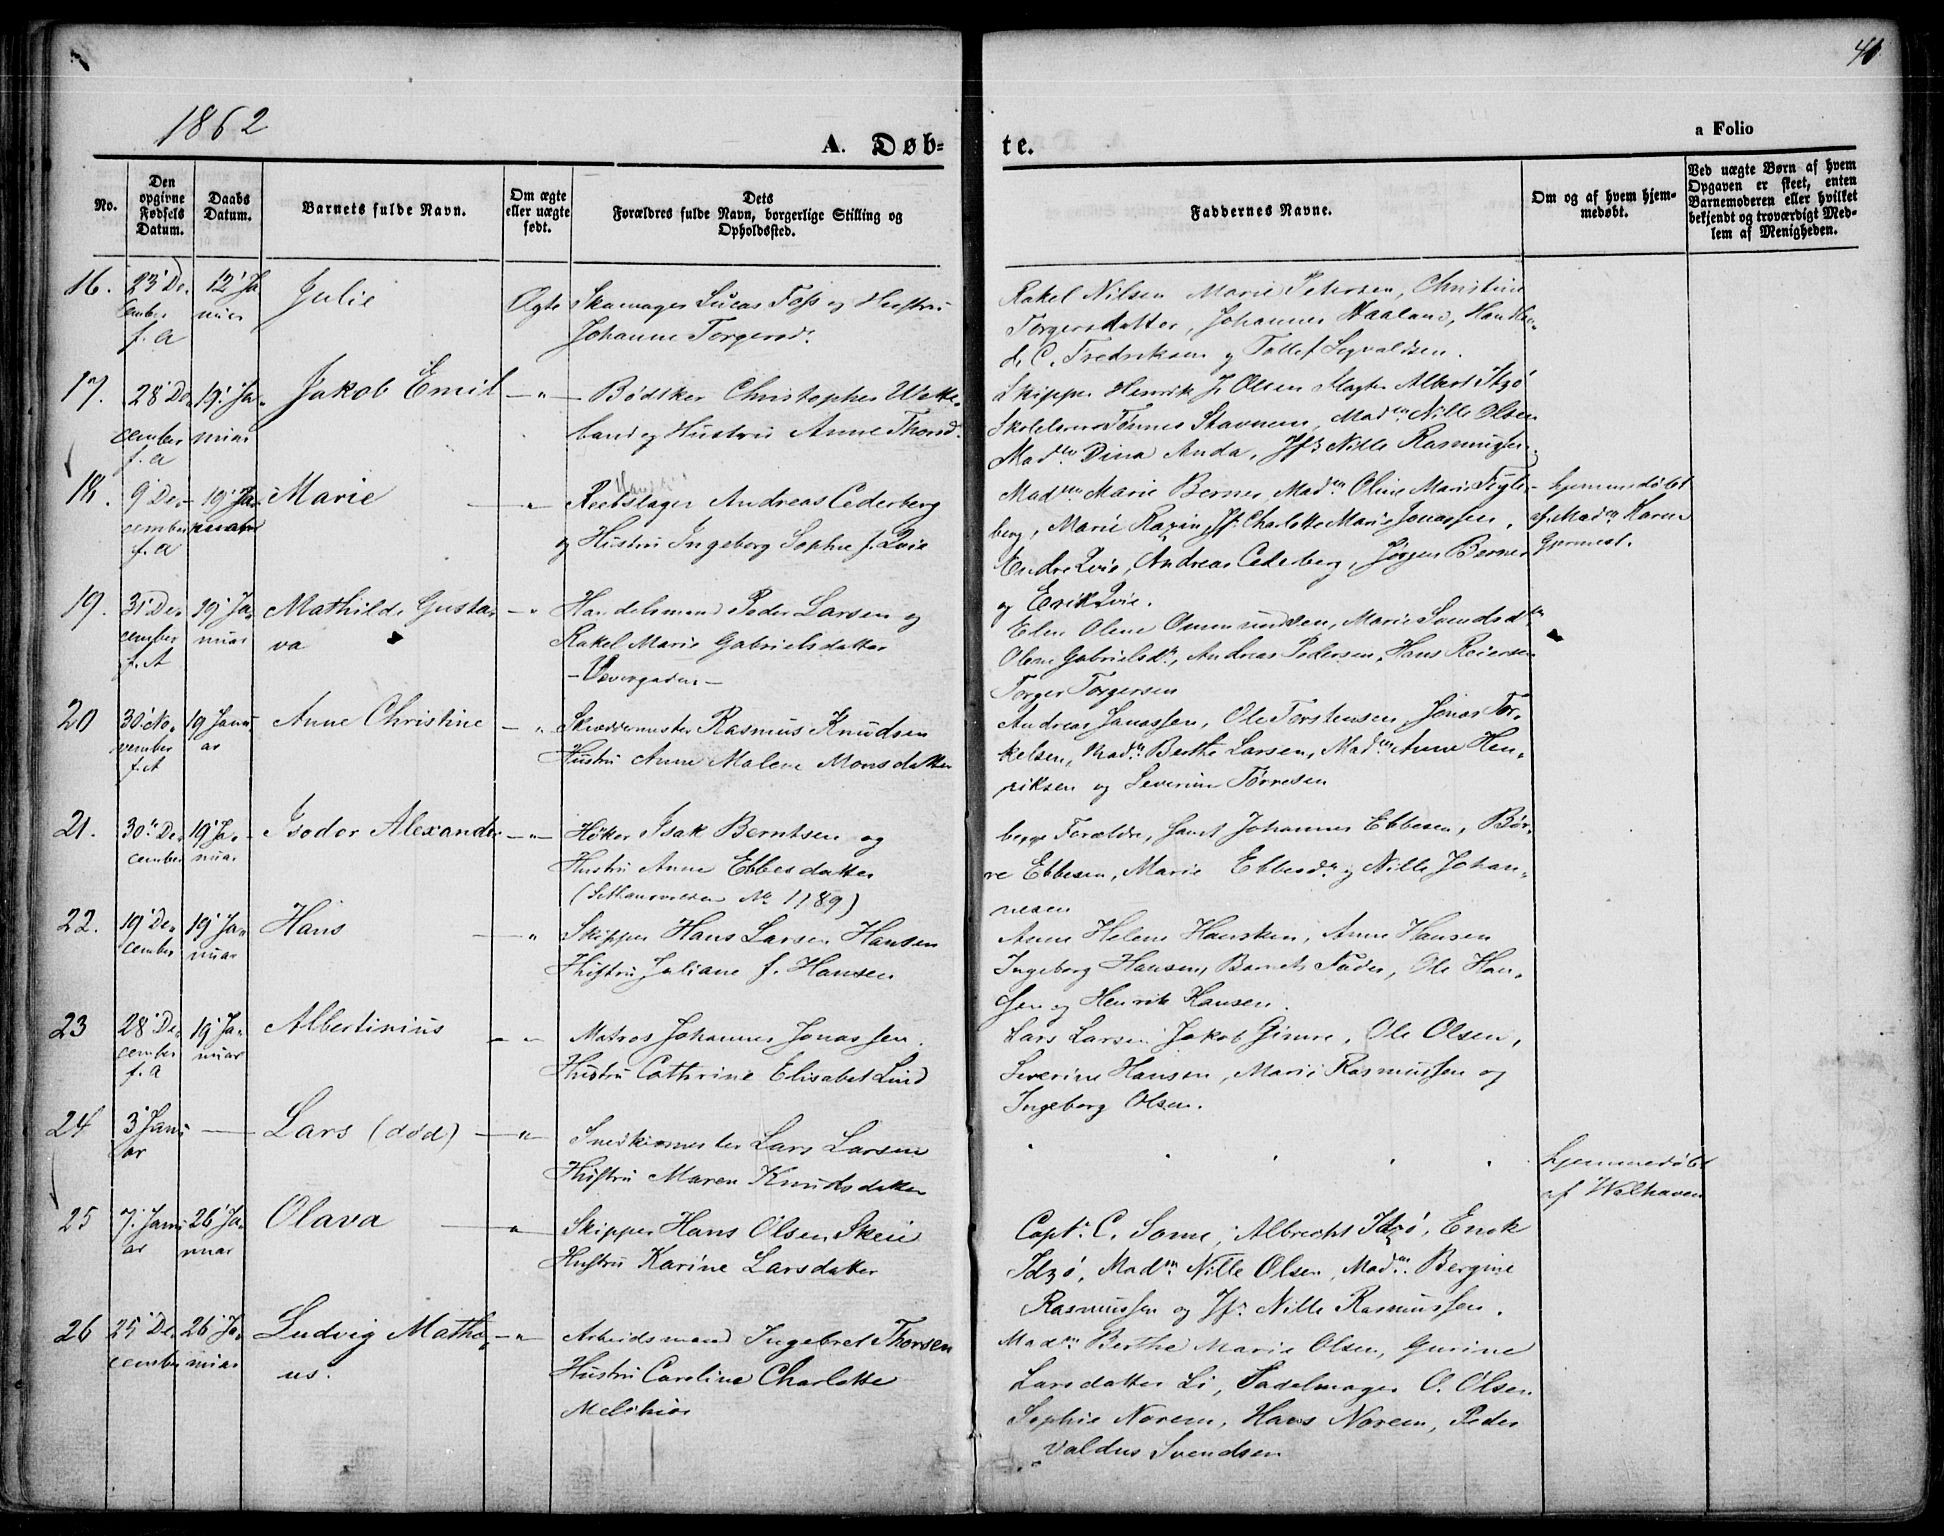 40
1862
A. Døb-
te.
a Folio
No.
Den opgivne Fødsels Datum.
Daabs Datum.
Barnets fulde Navn.
Om ægte eller uægte født.
Dets Forældres fulde Navn, borgerlige Stilling og Opholdssted.
Faddernes Navne.
Om og af hvem hjemmedøbt.
Ved uægte Børn af hvem Opgaven er skeet, enten Barnemoderen eller hvilket bekjendt og troværdigt Medlem af Menigheden.
16. 23' De- 12' Ja Julie Ægte Skomager Lucas Foss og Hustru
cember nuar Johanne Torgersd.
f. a
Rakel Nilsen Marie Petersen, Christine
Torgersdatter, Johannes Haaland,
C. Fredriksen og Tollef Sigvaldsen.
17. 28' De- 19' Ja- Jakob Emil — " — Bødker Christopher Welle-
cember nuar land og Hustru Anne Thorsd.
f. a
Skipper Henrik J. Olsen Albert Idzø
Skolelærer Tønnes Stavnem, Mad. Nille Olsen
Mad. Dina Anda, Jfr. Nille Rasmussen
18. 9' De- 19' Ja- Marie — " Reebslager Andreas Cederberg
cember nuar og Hustru Ingeborg Sophie f. Qvie
f. a
Mad. Marie Berner, Mad. Oline Marie Tegle-
berg, Marie Razin, Jf. Charlotte Marie Jonassen,
Endre Qvie, Andreas Cederberg, Jørgen Berner
og Erik Qvie.
hjemmedøbt
af Mad. Karen
Gjermest.
19. 31' De- 19' Ja- Mathilde Gusta- — " Handelsmand Peder Larsen og
cember nuar va Rakel Marie Gabrielsdatter
f. A — Vævergaden —
Elen Olene Ommundsen, Marie Svendsd.
Olene Gabrielsd., Andreas Pedersen, Hans Reiersen
Torger Torgersen
20 30' No- 19 Janu- Anne Christine — " Skreddermester Rasmus Knudsen
vember ar Hustru Anne Malene Monsdatter
f. A
Andreas Jonassen, Ole Torstensen, Jonas Tor-
kelsen, Mad. Berthe Larsen, Mad. Anne Hen-
riksen og Severine Tørresen
21. 30' De- 19' Ja- Isodor Alexander — " — Høker Isak Berntsen og
cember nuar Hustru Anne Ebbesdatter
( No 1189)
begge Forældre, samt Johannes Ebbesen, Bør-
re Ebbesen, Marie Ebbesd. og Nille Johan-
nesen
22. 19' De- 19' Ja- Hans — " Skipper Hans Larsen Hansen
cember nuar Hustru Juliane f. Hansen
Anne Helene Hansken, Anne Hansen
Ingeborg Hansen, Barnets Fader, Ole Han-
sen og Henrik Hansen.
23 28' De- 19' Ja- Albertinius — " Matros Johannes Jonassen.
cember nuar Hustru Cathrine Elisabet Lind
f. a
Lars Larsen Jakob Gimre, Ole Olsen,
Severine Hansen, Marie Rasmussen og
Ingeborg Olsen.
24 3' Janu- — Lars (død) — " — Snedkermester Lars Larsen
ar Hustru Maren Knudsdatter
hjemmedøbt
af Welhaven
25 7' Janu- 26' Ja- Olava — " Skipper Hans Olsen Skeie
ar nuar Hustru Karine Larsdatter
Capt. C. Somme, Albrecht Idzø, Enok
Idzø, Mad. Nille Olsen, Mad. Bergine
Rasmussen og Jfr. Nille Rasmussen.
26 25' De- 26' Ja- Ludvig Mathe- — " Arbeidsmand Ingebret Thorsen
cember nuar us. Hustru Caroline Charlotte
Melchior
Mad. Berthe Marie Olsen, Gurine
Larsdatter Li, Sadelmager O. Olsen
Sophie Norem, Hans Norem, Peder
Valdus Svendsen